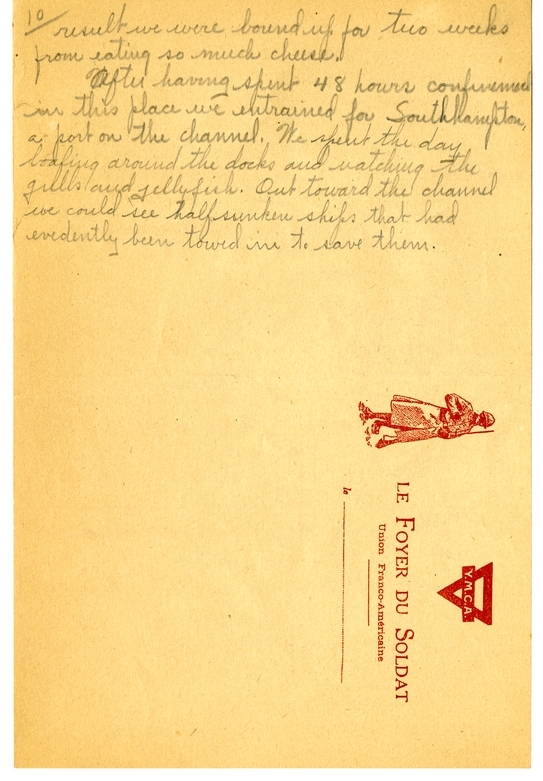 10/
result we were bound up for two weeks
from eating so much cheese.
After having spent 48 hours confinement
in this place we entrained for Southhampton,
a port on the channel. We spent the day
loafing around the docks and watching the
gulls and jellyfish. Out toward the channel
we could see half sunken ships that had
evedently been towed in to save them.
Y.M.C.A.
LE FOYER DU SOLDAT
Union Franco-Américaine
le